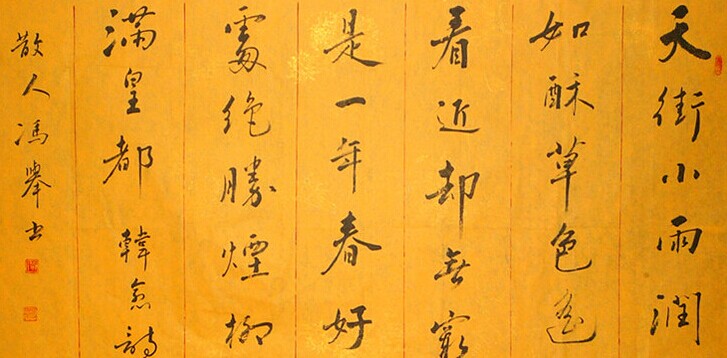 天街小雨潤
如酥草色遙
看近却無最
是一年春好
處絕勝煙柳
滿皇都 韓愈詩
散人馮舉書